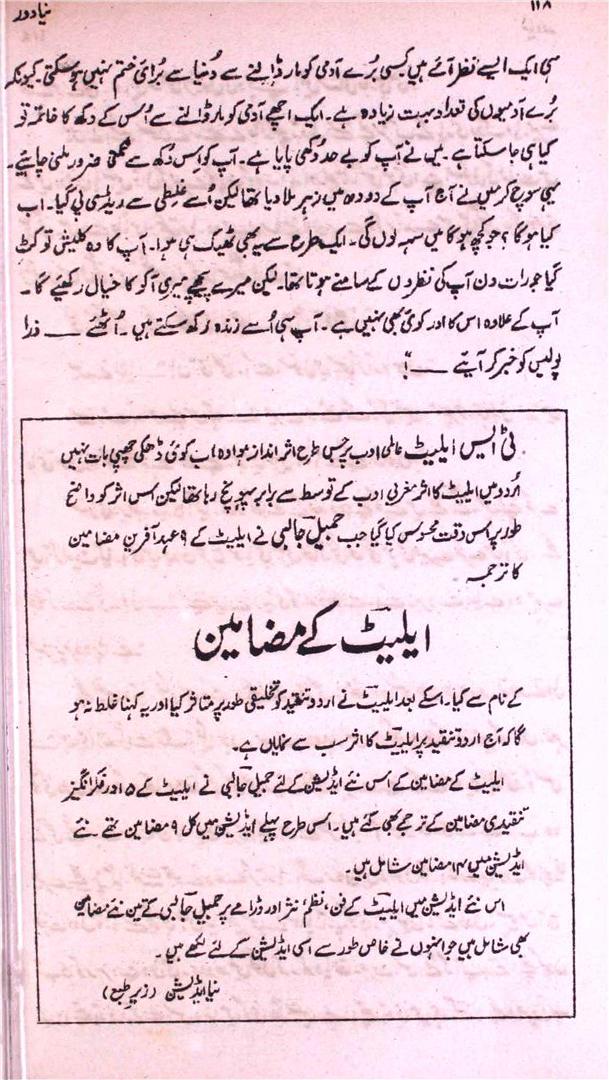 ۱۱۸
نیا دور
ہی ایک ایسے نظر آئے ہیں کسی بُرے آدمی کو مار ڈالنے سے دُنیا سے بُرائی ختم نہیں ہو سکتی۔ کیونکہ
بُرے آدمیوں کی تعداد بہت زیادہ ہے۔ ایک اچھے آدمی کو مار ڈالنے سے اُس کے دکھ کا خاتمہ تو
کیا ہی جا سکتا ہے۔ میں نے آپ کو بے حد دُکھی پایا ہے۔ آپ کو اِس دُکھ سے مُکتی ضرور ملنی چاہیئے۔
یہی سوچ کر میں نے آج آپ کے دودھ میں زہر ملا دیا تھا لیکن اُسے غلطی سے ڈی پی گیا۔ اب
کیا ہو گا؟ جو کچھ ہو گا میں سہہ لوں گی۔ ایک طرح سے یہ بھی ٹھیک ہی ہوا۔ آپ کا وہ کلیش تو کٹ
گیا جو رات دن آپ کی نظروں کے سامنے ہوتا تھا۔ لیکن میرے پیچھے میری آکو کا خیال رکھیئے گا۔
آپ کے علاوہ اس کا اور کوئی بھی نہیں ہے۔ آپ ہی اُسے زندہ رکھ سکتے ہیں۔ اُٹھئے ــــ ذرا
پولیس کو خبر کر آیئے ــــ!"
ٹی ایس ایلیٹ عالمی ادب پر جس طرح اثر انداز ہوا وہ اب کوئی ڈھکی چھپی بات نہیں
اُردو میں ایلیٹ کا اثر مغربی ادب کے توسط سے برابر پہونچ رہا تھا لیکن اس اثر کو واضح
طور پر اس وقت محسوس کیا گیا جب جمیل جالبی نے ایلیٹ کے ۹ عہد آفرین مضامین
کا ترجمہ
ایلیٹ کے مضامین
کے نام سے کیا۔ اسکے بعد ایلیٹ نے اردو تنقید کو تخلیقی طور پر متاثر کیا اور یہ کہنا غلط نہ ہو
گا کہ آج اردو تنقید پر ایلیٹ کا اثر سب سے نمایاں ہے۔
ایلیٹ کے مضامین کے اس نئے ایڈیشن کے لئے جمیل جالبی نے ایلیٹ کے ۵ اور فکر انگیز
تنقیدی مضامین کے ترجمے بھی کئے ہیں۔ اس طرح پہلے ایڈیشن میں کل ۹ مضامین تھے نئے
ایڈیشن میں ۱۴ مضامین شامل ہیں۔
اس نئے ایڈیشن میں ایلیٹ کے فن، نظم، نثر اور ڈرامے پر جمیل جالبی کے تین نئے مضامین
بھی شامل ہیں جو انہوں نے خاص طور سے اسی ایڈیشن کے لئے لکھے ہیں۔
نیا ایڈیشن (زیرِ طبع)